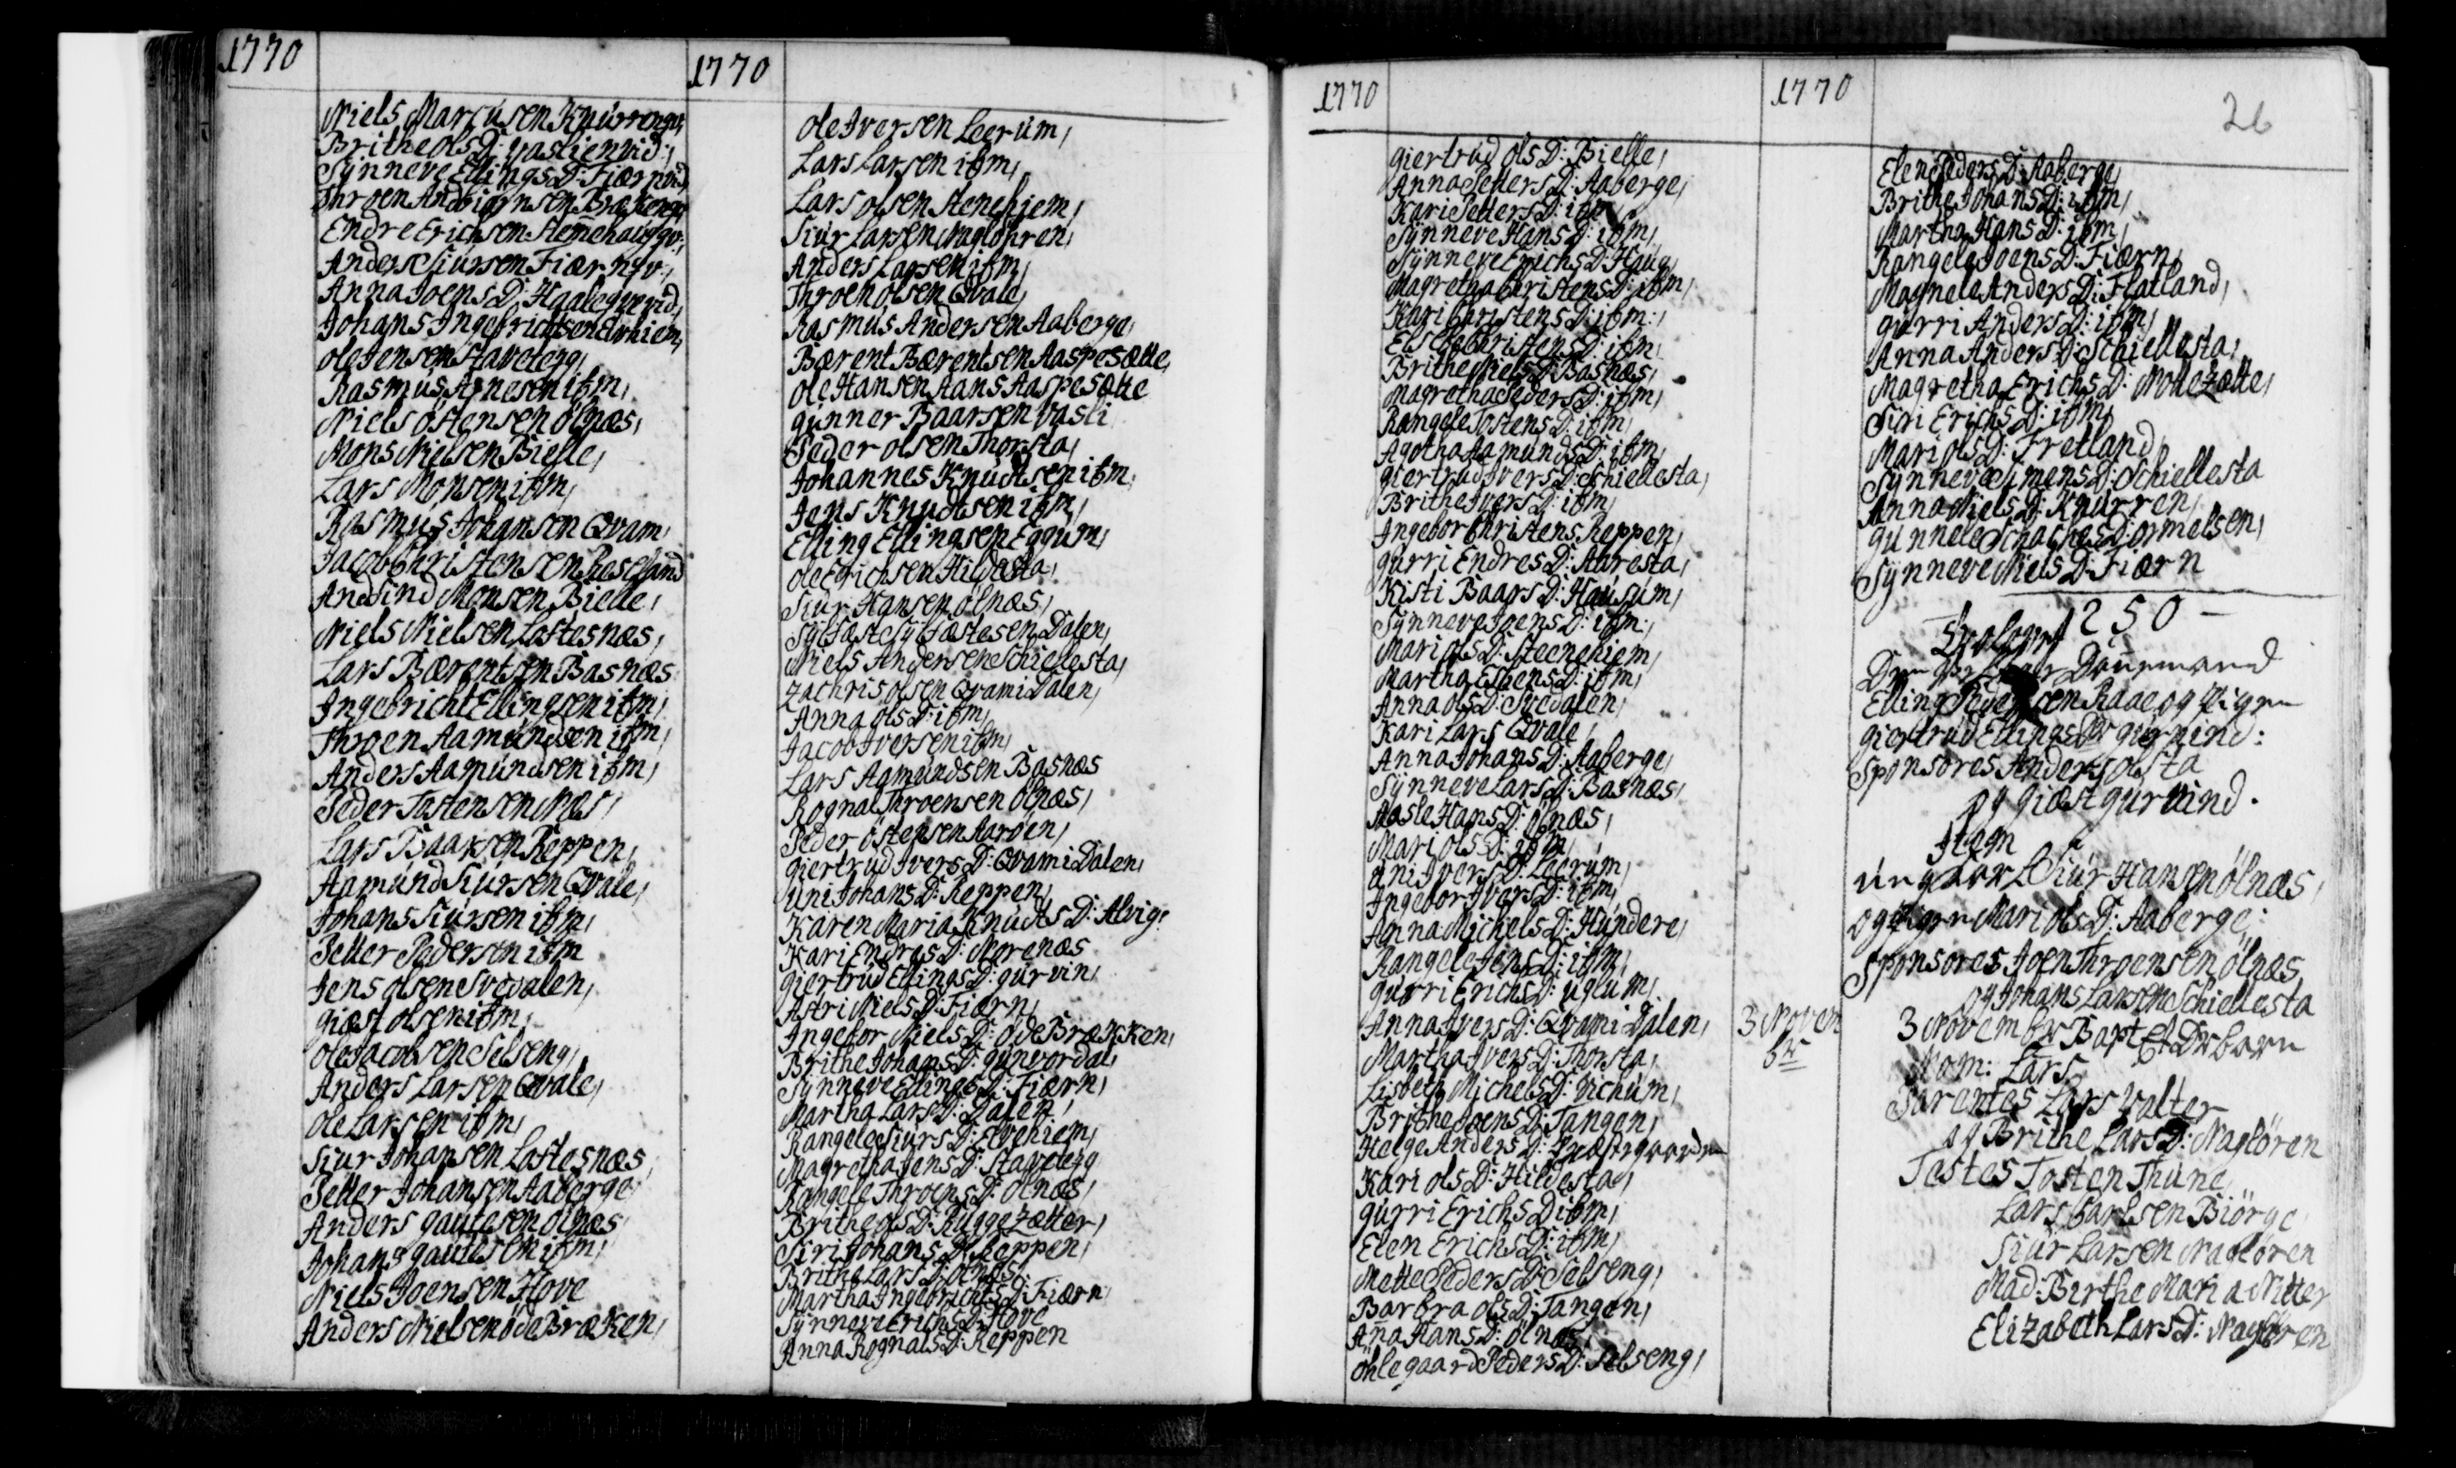 1770
Niels Marcusen Knurrengv:
Brithe ols D: Vaslienvid:,
Synneve Ellings D: Fiærnvid,
Throen Andbiørnsen Brækengv:
Endre Erichsen Stenehauggv:,
Anders Siursen Fiærngv:,
Anna Joens D: Haalegvevid,
Johans Ingebrichtsen Elvhiem,
ole Jensen Stavetegg,
Rasmus Arnesen ibm,
Niels östensen ölnæs,
Mons Nielsen Bielle,
Lars Monsen ibm,
Rasmus Johansen Qvam,
Jacob Christensen Reseland
Andfind Monsen Bielle,
Niels Nielsen Loftesnæs,
Lars Bærentsen Basnæs
Ingebricht Ellingsen ibm,
Throen Aamundsen ibm,
Anders Aamundsen ibm,
Peder Tostensen Næs,
Lars Baarsen Reppen,
Aamund Siursen Qvale,
Johans Siursen ibm,
Petter Pedersen ibm
Jens olsen Svedalen,
Giæst olsen ibm,
ole Jacobsen Selseng,
Anders Larsen Qvale,
ole Larsen ibm,
Siur Johansen Loftesnæs,
Petter Johansen Aaberge,
Anders gautesen ölnæs,
Johans gautesen ibm,
Niels Joensen Hove
Anders Nielsen öde Bræken,
1770
ole Iversen Leerum,
Lars Larsen ibm,
Lars olsen Stenehjem,
Siur Larsen Naglöhren,
Anders Larsen ibm,
Throen olsen Qvale,
Rasmus Andersen Aaberge,
Bærent Bærentsen Aaspesætte,
ole Hansen Aans Aaspesætte
gunner Baarsen Vasli
Peder olsen Thorsta,
Johannes Knudtsen ibm,
Jens Knudtsen ibm,
Elling Ellingsen Eggum,
ole Erichsen Hildesta,
Siur Hansen ölnæs,
Sylfæst Sylfæstesen Dalen,
Niels Andersen Schiellesta,
Zachris olsen Qvam i Dalen,
Anna ols D: ibm,
Jacob Iversen ibm,
Lars Aamundsen Basnæs
Rognal Throensen ölnæs,
Peder östensen Aaröen,
Giertrud Ivers D: Qvam i Dalen,
uni Johans D: Reppen,
Karen Maria Knudts D: Alvig,
Kari Endres D: Norenæs
Giertrud Ellings D: gurvin,
Astri Niels D: Fiærn,
Ingebor Niels D: öde Brækken,
Brithe Johans D: gunvordal,
Synneve Ellings D: Fiærn,
Martha Lars D: Dalen,
Rangele Siurs D: Elvehiem,
Magretha Jens D: Stavetegg
Rangele Throens D: ölnæs,
Brithe ols D: Ruggezætter,
Siri Johans D: Reppen,
Brithe Lars D: ölnæs
Martha Ingebrichts D: Fiærn,
Synneve Erichs D: Hove
Anna Rognals D: Reppen
1770
giertrud ols D: Bielle,
Anna Petters D: Aaberge,
Kari Petters D: ibm
Synneve Hans D: ibm,
Synneve Erichs D: Haug,
Magretha Christens D: ibm,
Kari Christens D: ibm:,
Elsebe Christens D: ibm,
Brithe Niels D: Basnæs,
Magretha Peders D: ibm,
Rangele Tostens D: ibm,
Agotha Aamunds D: ibm,
Giertrud Ivers D: Schiellesta,
Brithe Ivers D: ibm,
Ingebor Christens Reppen,
gurri Endres D: Abresta,
Kisti Baars D: Hausum,
Synneve Joens D: ibm:,
Mari ols D: Steenehiem,
Martha Esbens D: ibm,
Anna ols D: Svedalen,
Kari Lars Qvale,
Anna Johans D: Aaberge,
Synneve Lars D: Basnæs,
Masle Hans D: ölnæs,
Mari ols D: ibm,
uni Ivers D: Leerum,
Ingebor Ivers D: ibm,
Anna Michels D: Hundere,
Rangele Jens D: ibm,
gurri Erichs D: uglum,
Anna Ivers D: Qvam i Dalen,
Martha Ivers D: Thorsta,
Lisbeth Michels D: Vichum,
Brithe Joens D: Tangen,
Helge Anders D: Præstegaarden
Kari ols D: Hildesta,
gurri Erichs D: ibm,
Elen Erichs D: ibm,
Mette Peders D: Selseng,
Barbra ols D: Tangen,
Anna Hans D: ölnæs,
öhlegaard Peders D: Selseng,
1770
26
Elen Peders D: Aaberge,
Brithe Johans D: ibm,
Martha Hans D: ibm,
Rangele Joens D: Fiærn,
Magnela Anders D: Flatland,
gurri Anders D: ibm,
Anna Anders D: Schiellesta,
Magretha Erichs D: Nottezætte,
Siri Erichs D: ibm,
Mari ols D: Fretland,
Synneve Simens D: Schiellesta
Anna Niels D: Knurren,
gunnele Schaches D: ormelsen,
Synneve Niels D: Fiærn
250 -
Trolovet
Dannemand
Elling Pedersen Raae og Pigen
Giertrud Ellings Dr gurvind:
Sponsores Anders olsta
og giæst gurvind.
Item
ungkarl Siur Hansen ölnæs,
og Pigen Mari ols D: Aaberge:
Sponsores Joen Throensen ölnæs
og Johans Larsen Schiellesta
3 Noven
br
3 November Bapt Et Drbarn
Nom: Lars
Parentes Lars Valter
og Brithe Lars D: Naglören
Testes Tosten Thune,
Lars Carlsen Biörge,
Siur Larsen Naglören
Mad: Birthe Maria Nitter
Elizabeth Lars D: Naglören